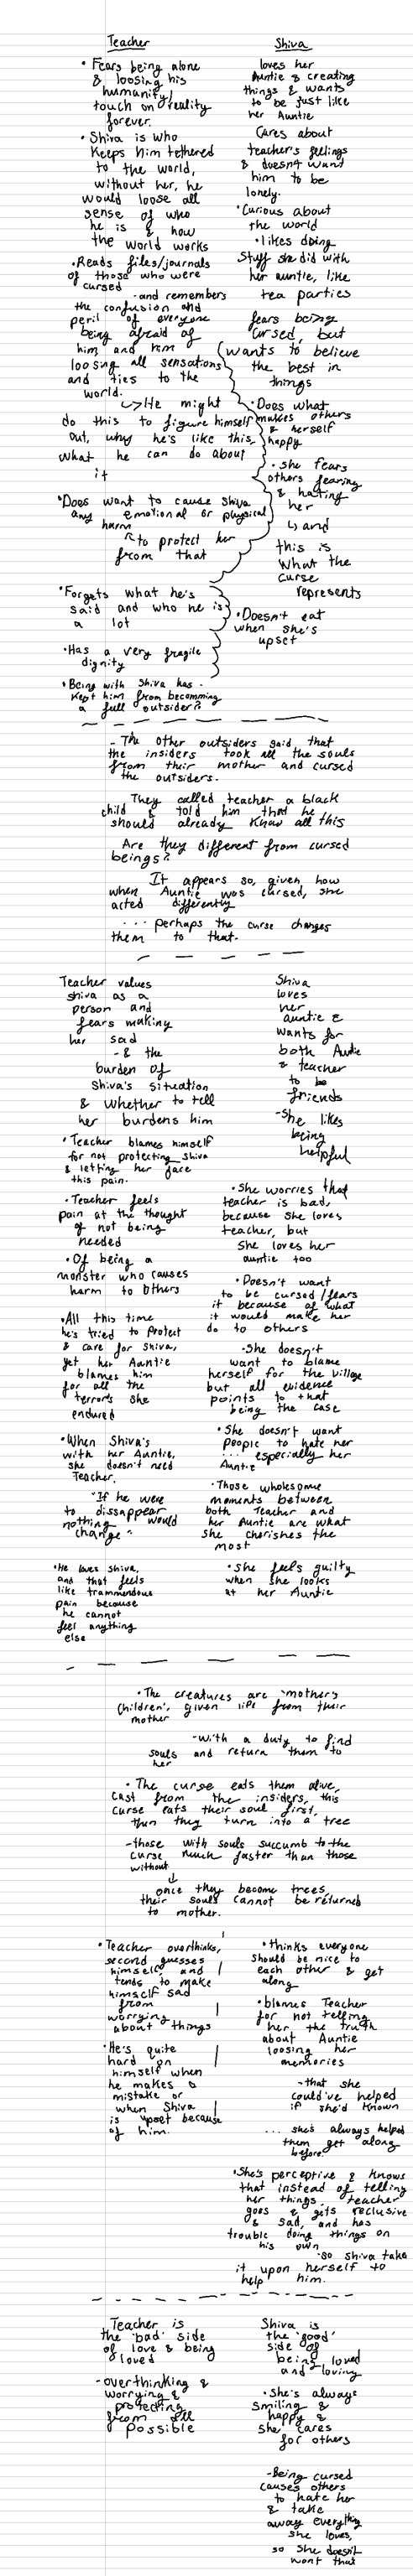 Teacher
• Fears being alone
& loosing his
humanity/
touch on reality
forever.
• Shiva is who
keeps him tethered
to the world,
without her, he
would loose all
sense of who
he is & how
the world works
• Reads files/journals
of those who were
cursed
- and remembers
the confusion and
peril of everyone
being afraid of
him and him
loosing all sensations
and ties to the
world.
↳ He might
do this to figure himself
out, why he's like this,
what he can do about
it
• Does want to cause Shiva
any emotional or physical
harm
↖ to protect her
from that
• Forgets what he's
said and who he is
a lot
• Has a very fragile
dignity
• Being with Shiva has
kept him from becomming
a full outsider?
Shiva
loves her
Auntie & creating
things & wants
to be just like
her Auntie
Cares about
teacher's feelings
& doesn't want
him to be
lonely.
• Curious about
the world
• likes doing
stuff she did with
her auntie, like
tea parties
fears being
cursed, but
wants to believe
the best in
things
• Does what
makes others
& herself
happy
• she fears
others fearing
& hating
her
↳ and
this is
what the
curse
represents
• Doesn't eat
when she's
upset
- The other outsiders said that
the insiders took all the souls
from their mother and cursed
the outsiders.
They called teacher a black
child & told him that he
should already know all this
Are they different from cursed
beings?
It appears so, given how
when Auntie was cursed, she
acted differently
... perhaps the curse changes
them to that.
Teacher values
shiva as a
person and
fears making
her sad
- & the
burden of
Shiva's situation
& whether to tell
her burdens him
• Teacher blames himself
for not protecting Shiva
& letting her face
this pain.
• Teacher feels
pain at the thought
of not being
needed
• Of being a
monster who causes
harm to others
• All this time
he's tried to protect
& care for Shiva,
yet her Auntie
blames him
for all the
terrors she
endured
• When Shiva's
with her Auntie,
she doesn't need
Teacher.
"If he were
to dissappear
nothing would
change"
• He loves Shiva,
and that feels
like trammendous
pain because
he cannot
feel anything
else
Shiva
loves
her
auntie &
wants for
both Auntie
& teacher
to be
friends
- She likes
being
helpful
• She worries that
teacher is bad,
because she loves
teacher, but
she loves her
auntie too
• Doesn't want
to be cursed/fears
it because of what
it would make her
do to others
• She doesn't
want to blame
herself for the village
but all evidence
points to that
being the case
• She doesn't want
people to hate her
... especially her
Auntie
• Those wholesome
moments between
both Teacher and
her Auntie are what
she cherishes the
most
• She feels guilty
when she looks
at her Auntie
• The creatures are 'mothers
children', given life from their
mother
- with a duty to find
souls and return them to
her
• The curse eats them alive,
cast from the insiders, this
curse eats their soul first,
then they turn into a tree
- those with souls succumb to the
curse much faster than those
without
↓
once they become trees
their souls cannot be returned
to mother.
• Teacher overthinks,
second guesses
himself, and
tends to make
himself sad
from
worrying
about things
• He's quite
hard on
himself when
he makes a
mistake or
when Shiva
is upset because
of him.
• thinks everyone
should be nice to
each other & get
along
• blames Teacher
for not telling
her the truth
about Auntie
loosing her
memories
- that she
could've helped
if she'd known
... she's always helped
them get along
before.
• She's perceptive & knows
that instead of telling
her things, teacher
goes & gets reclusive
& sad, and has
trouble doing things on
his own
- so shiva take
it upon herself to
help him.
Teacher is
the 'bad' side
of love & being
loved
- overthinking &
worrying &
protecting
from all
possible
Shiva is
the 'good'
side of
being loved
and loving
• She's always
smiling &
happy &
she cares
for others
- Being cursed
causes others
to hate her
& take
away everything
she loves,
so she doesn't
want that